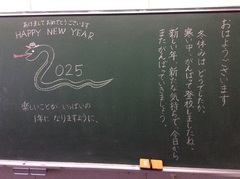 あけまして おめでとうございます
HAPPY NEW YEAR
2025
楽しいことが いっぱいの
1年に なりますように。
おはようございます
冬休みは どうでしたか。
寒い中、がんばって登校しましたね。
新しい年、新たな気持ちで、今日から
またがんばっていきましょう。